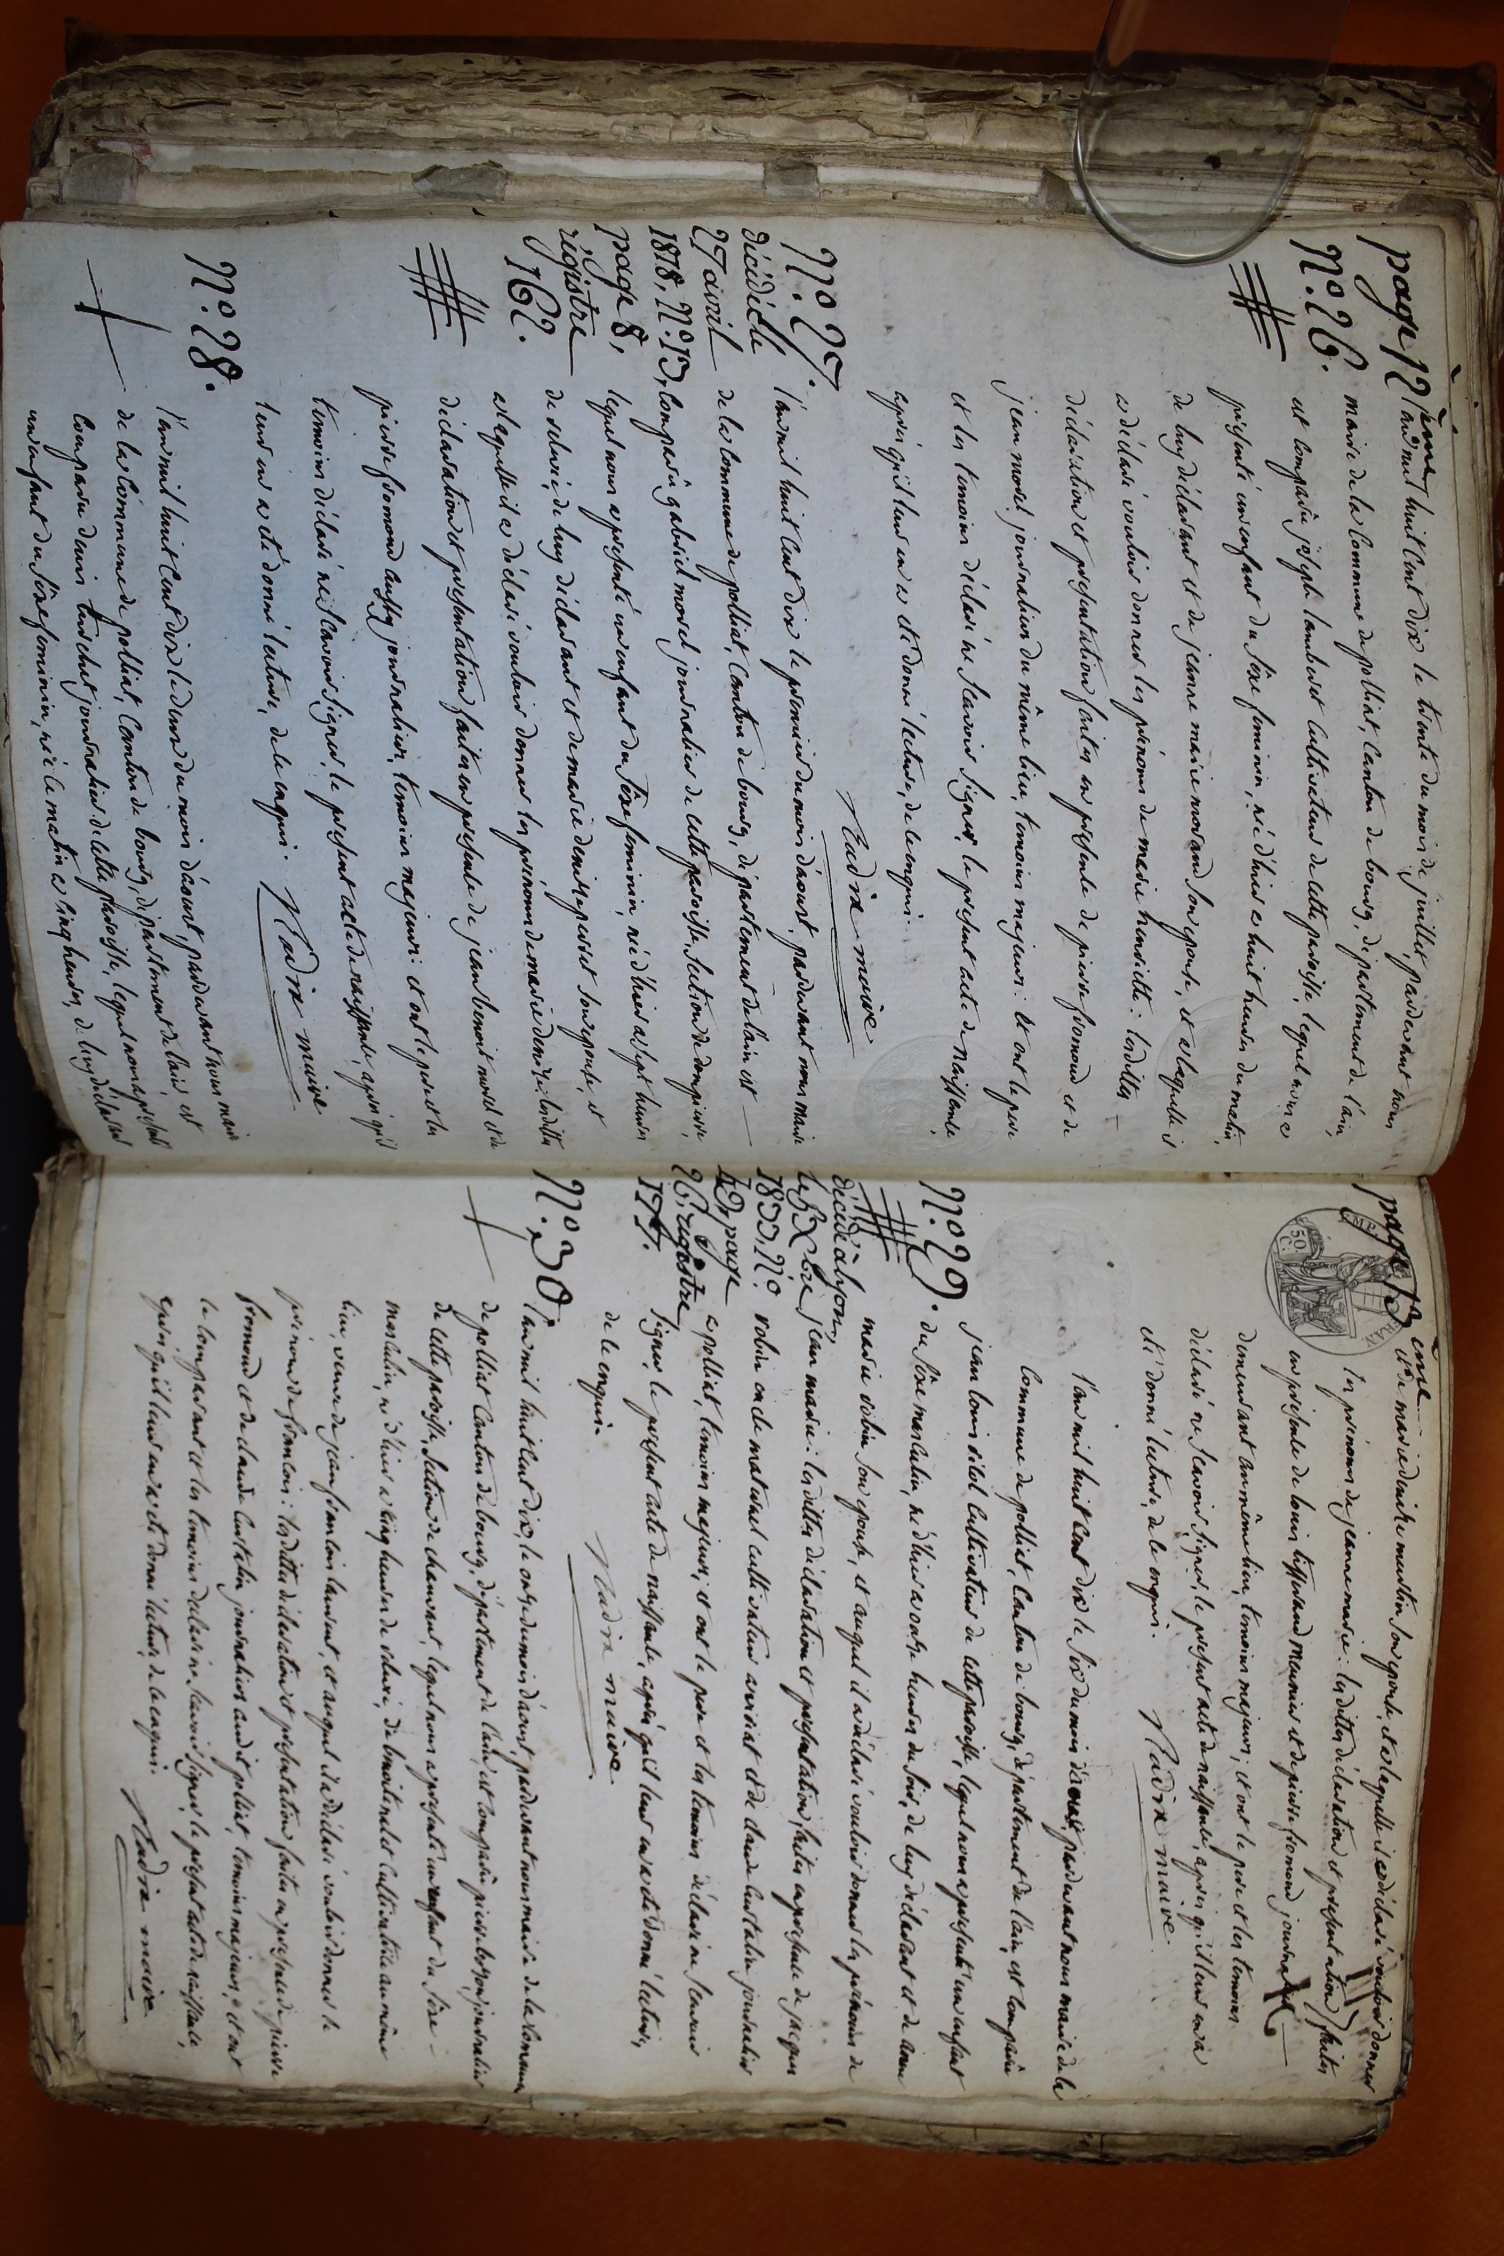 page 12 ème
N.o 26.
l'an mil huit cent dix le trente du mois de juillet, pardevant nous
maire de la commune de polliat, canton de bourg, département de l'ain,
est comparu joseph lambert cultivateur de cette paroisse, lequel nous a
présenté un enfant du sexe feminin, née d'hier a huit heures du matin,
de luy déclarant et de jeanne marie morand son epouse, et a laquelle il
a déclaré vouloir donner les prénoms de marie henriette: lesdittes
déclaration et presentation faites en presence de pierre fromond et de
jean morel journaliers du même lieu, temoins majeurs: et ont le pere
et les temoins déclaré ne scavoir signer le present acte de naissance,
après qu'il leur en a été donné lecture, de ce enquis.
Nadix maire
N.o 27.
décédée le
27 avril
1818, N.o 13,
page 8,
régistre
162.
l'an mil huit cent dix le premier du mois d'aoust, pardevant nous maire
de la commune de polliat, canton de bourg, département de l'ain est
comparu gabriel morel journalier de cette paroisse, section de dompierre,
lequel nous a presenté un enfant du sexe feminin, née d'hier a sept heures
de relevé, de luy déclarant et de marie denise perret son epouse, et
a laquelle il a déclaré vouloir donner les prénoms de marie denise: lesdittes
déclaration et presentation faites en presence de jean benoit morel et de
pierre fromond aussy journaliers, temoins majeurs: et ont le pere et les
temoins déclaré ne scavoir signer le present acte de naissance, après qu'il
leur en a été donné lecture, de ce enquis.
Nadix maire
N.o 28.
l'an mil huit cent dix le deux du mois d'aoust, pardevant nous maire
de la commune de polliat, canton de bourg, département de l'ain, est
comparu denis journalier de cette paroisse, lequel nous a presenté
un enfant du sexe feminin, née ce matin a cinq heures, de luy déclarant
page 13 ème
50 C.
et de marie denise son epouse, et a laquelle il a déclaré vouloir donner
les prénoms de jeanne marie: lesdittes déclaration et presentation faites
en presence de louis meunier et de pierre fromond journalier
demeurant au même lieu, temoins majeurs; et ont le pere et les temoins
déclaré ne scavoir signer le present acte de naissance, après qu'il leur en a
été donné lecture, de ce enquis.
Nadix maire.
N.o 29.
décédé a lyon,
le
1833, N.o
page
26, registre
177.
l'an mil huit cent dix le six du mois d'aoust, pardevant nous maire de la
commune de polliat, canton de bourg, département de l'ain, est comparu
jean louis cultivateur de cette paroisse, lequel nous a presenté un enfant
du sexe masculin, né d'hier a onze heures du soir, de luy déclarant et de
marie robin son epouse, et auquel il a déclaré vouloir donner les prénoms de
jean marie: lesdittes déclaration et presentation, faites en presence de jacques
robin cultivateur et de claude journalier
a polliat, temoins majeurs; et ont le pere et les temoins déclaré ne scavoir
signer le present acte de naissance, après qu'il leur en a été donné lecture,
de ce enquis.
Nadix maire.
N.o 30.
l'an mil huit cent dix, le onze du mois d'aoust, pardevant nous maire de la commune
de polliat canton de bourg, département de l'ain, est comparu pierre journalier
de cette paroisse, section de lequel nous a presenté un enfant du sexe
masculin, né d'hier a cinq heures de relevé, de cultivatrice au même
lieu, veuve de jean et auquel il a déclaré vouloir donner le
prénom de francois: lesdittes déclaration et presentation faites en presence de pierre
fromond et de claude journaliers audit polliat, temoins majeurs, et ont
le comparant et les temoins déclaré ne scavoir signer le present acte de naissance,
après qu'il leur en a été donné lecture, de ce enquis.
Nadix maire